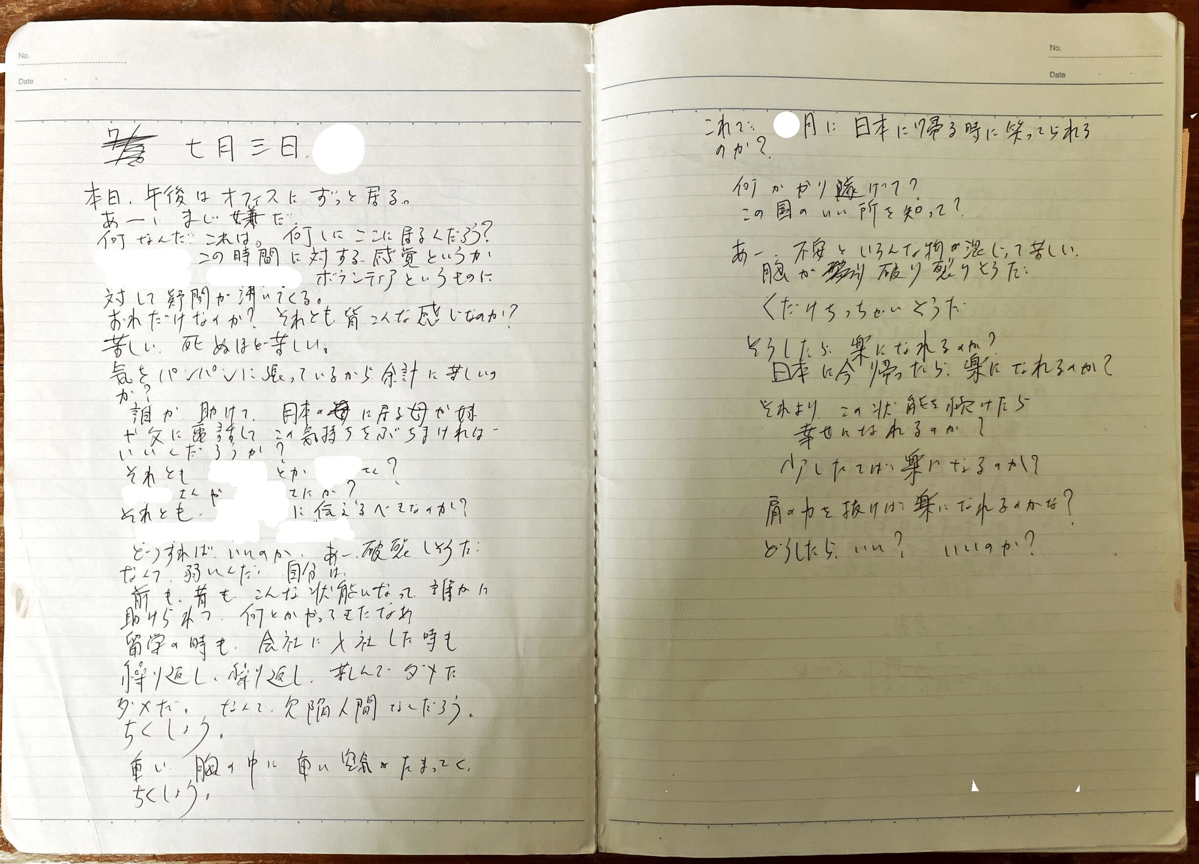 No.
Date
七月三日.
本日、午後はオフィスにずっと居る。
あー、まじ嫌だ。
何なんだこれは。何しにここに居るんだろう?
この時間に対する感覚というか
ボランティアというものに
対して疑問が沸いてくる。
おれだけなのか? それとも皆こんな感じなのか?
苦しい。死ぬほど苦しい。
気をパンパンに張っているから余計に苦しいの
か?
誰か助けて、日本の に居る母か妹
や父に電話して、この気持ちをぶちまければ
いいんだろうか?
それとも とか ?
さんや てにか?
それとも、 に伝えるべきなのか?
どうすればいいのか、あー、破裂しそうだ
なんて、弱いんだ 自分は、
前も、昔も、こんな状態になって誰かに
助けられつ、何とかやってきたなあ
留学の時も、会社に入社した時も
繰り返し、繰り返し、苦しんでダメだ
ダメだ。なんて、欠陥人間なんだろう。
ちくしょう。
重い、胸の中に重い空気がたまってく、
ちくしょう。
No.
Date
これで、 月に日本に帰る時に笑ってられる
のか?
何かやり遂げて?
この国のいい所を知って?
あー、不安といろんな物が混じって苦しい
胸が 破り裂りそうだ
くだけちっちゃいそうだ
どうしたら、楽になれるのか?
日本に今帰ったら、楽になれるのか?
それより、この状態を続けたら
幸せになれるのか?
少したてば楽になるのか?
肩の力を抜けば楽になれるのかな?
どうしたら、いい? いいのか?